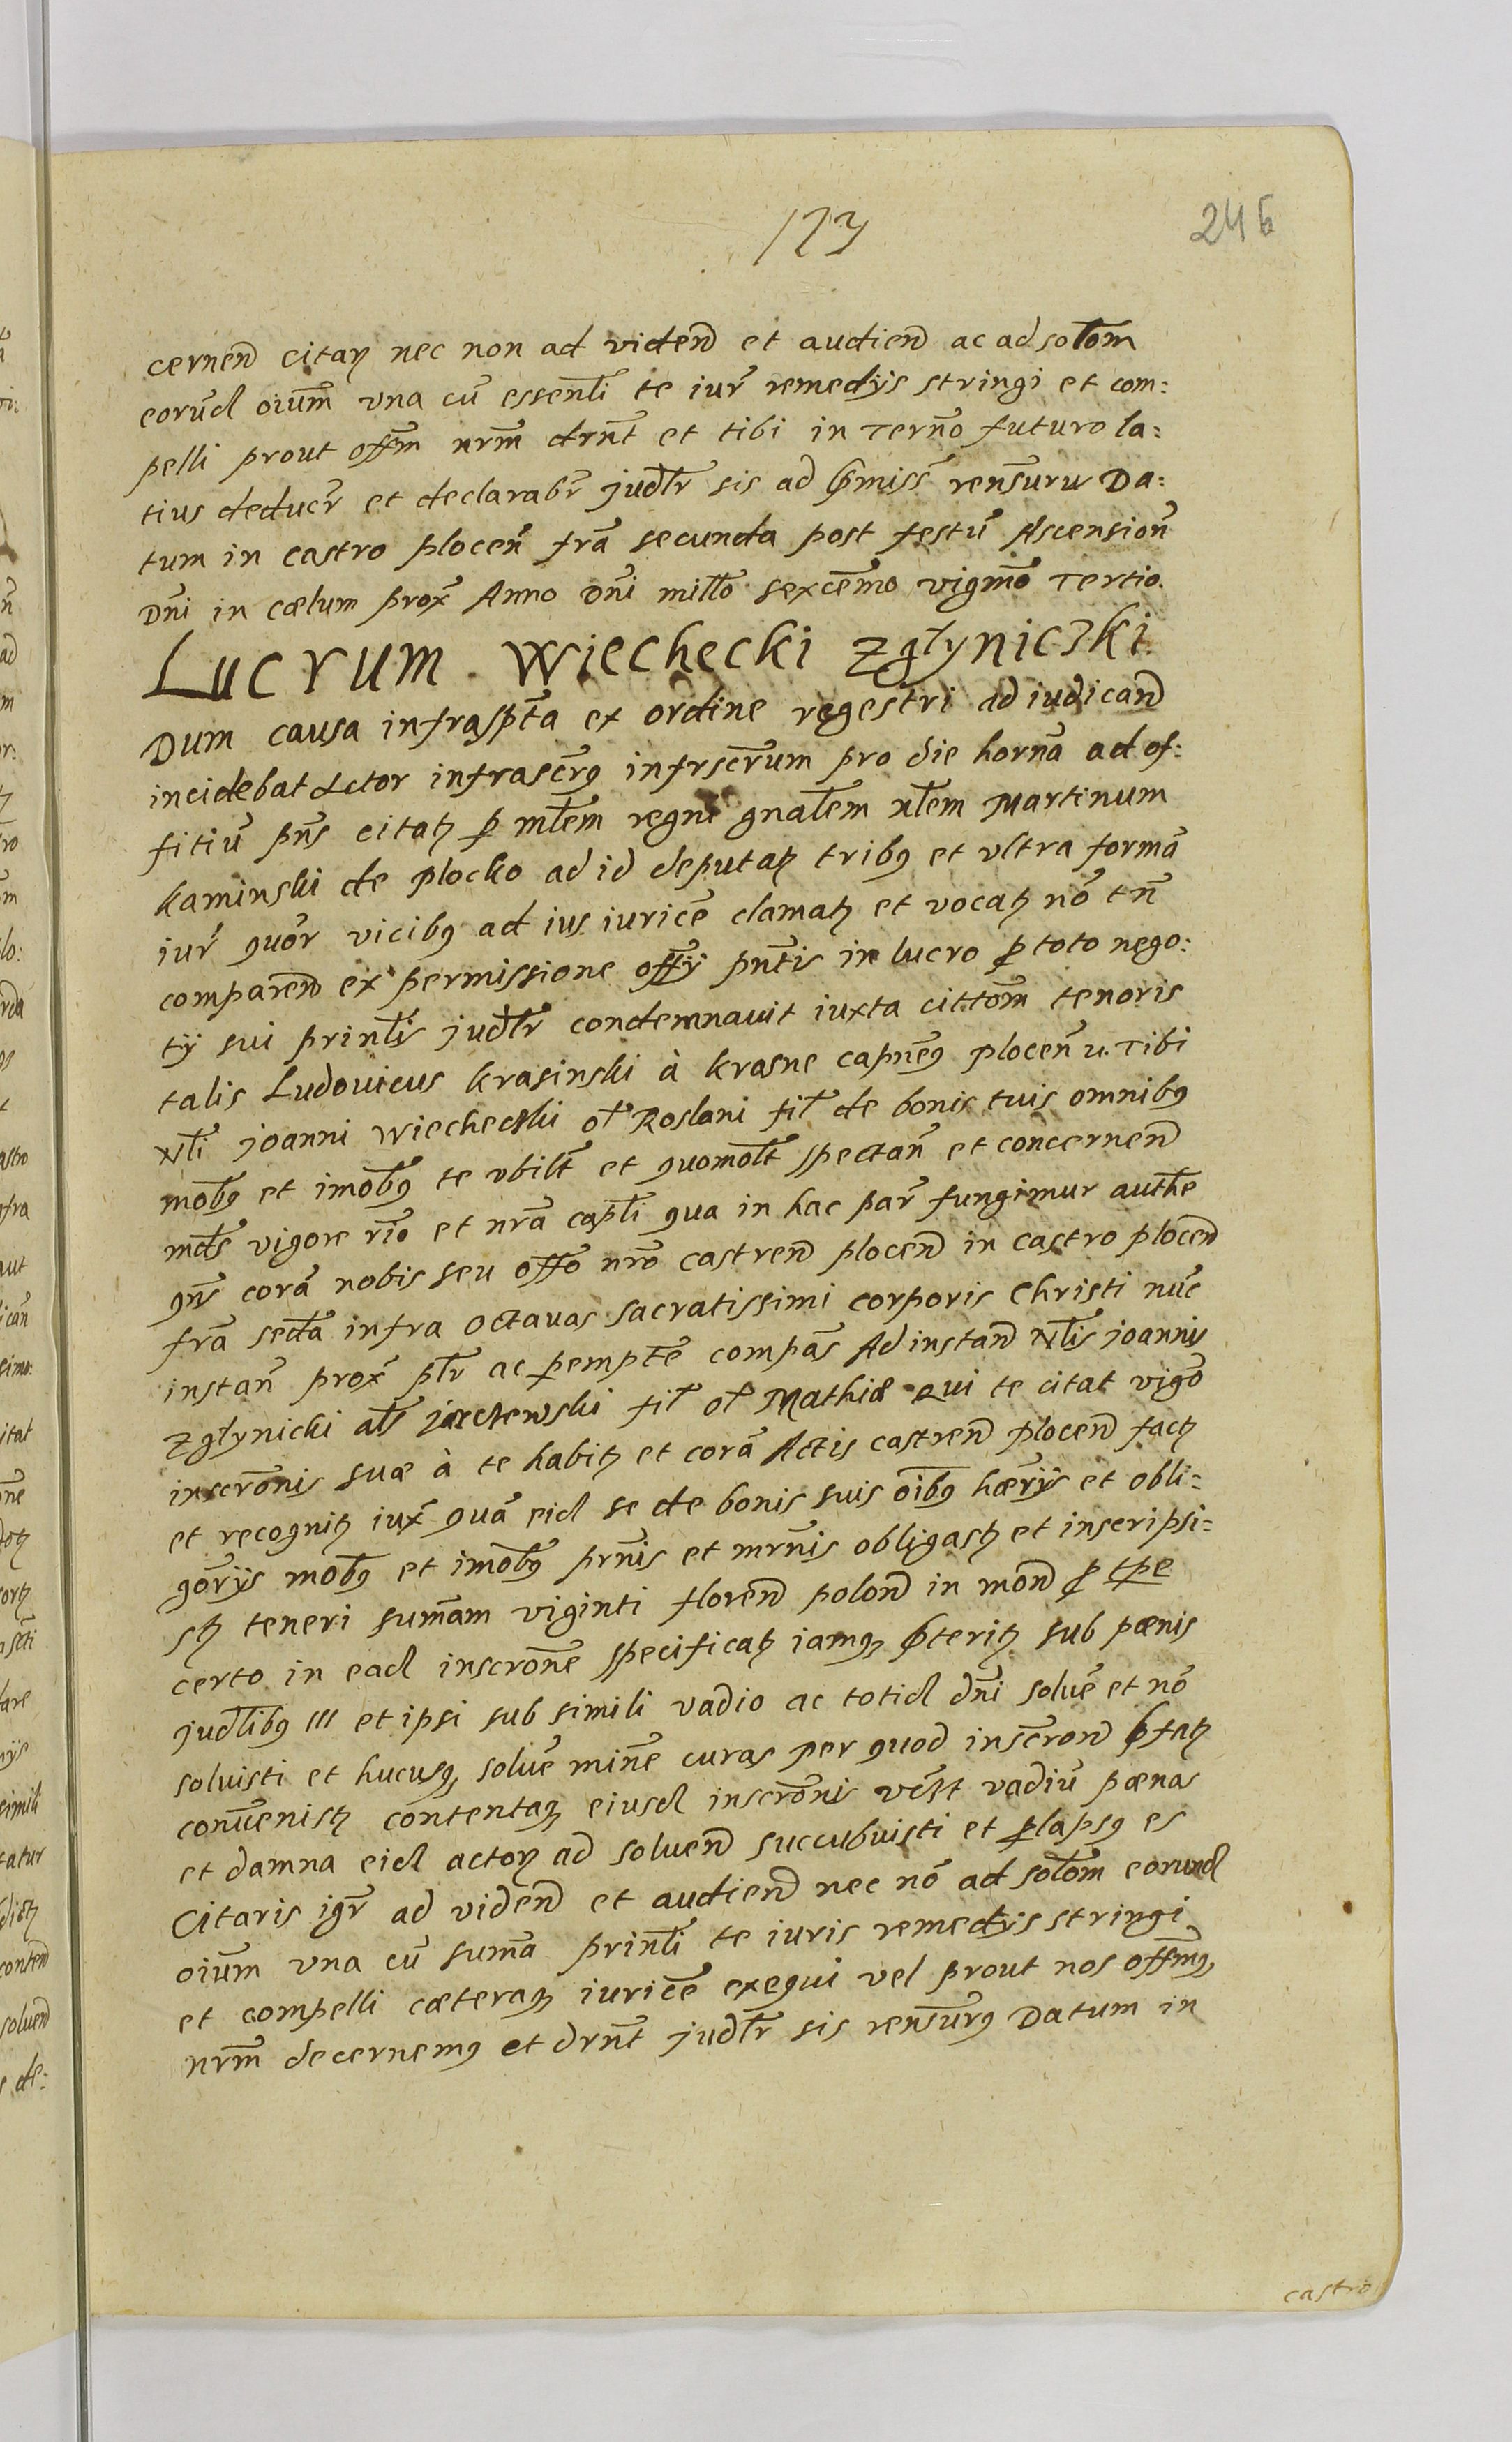 173
246
cernen̄ citaꝶ nec non ad viden̄ et audien̄ ac ad sołom̄
eorūd oiūm vna cū essentłi te iur̄ remedijs stringi et com:
pelli prout offm̄ nrm̄ drn̄t et tibi in Terno᷈ futuro la:
tius deducr̄ et declarabr̄ judłr sis ad p̄miss̄ ren̄surus Da:
tum in castro plocen̄ fra᷈ secunda post festū Ascension̄
Dn̄i in cœlum prox̄ Anno Dn̄i millo᷈ sexcēmo vigm̄o Tertio.
Lucrum Wiechecki Zgłyniczki
Dum causa infrasp̄ta ex ordine regestri ad iudican̄
incidebat Actor infrascrꝰ infrscr̄um pro die horna᷈ ad of:
fitiū pn̄s citatꝫ ꝑ młem regni gnałem nłem Martinum
Kaminski de Plocko ad id deputatꝫ tribꝰ et vltra formā
iur̄ quor̄ vicibꝰ ad ius iuricē clamatꝫ et vocatꝫ nō tn̄
comparen̄ ex permissione offij pn̄tis in lucro ꝓ toto nego:
tij sui prinłis judłr condemnauit iuxta cittom̄ tenoris
talis Ludouicus Krasinski à Krasne capn̄eꝰ Plocen̄ u. Tibi
Nłi Joanni Wiechecki oł Roslani fił de bonis tuis omnibꝰ
mob̄ꝰ et imob̄ꝰ te vbiłt et quomołt spectan̄ et concernen̄
mdts̄ vigore rīo et nra᷈ capłi qua in hac par̄ fungimur authē
qn̄s corā nobis seu offo᷈ nro᷈ castren̄ plocen̄ in castro plocen̄
fra᷈ sectā infra Octauas sacratissimi corporis Christi nūc
instan̄ prox̄ płr ac ꝑemptē compās Ad instan̄ Nłis Joannis
Zgłynicki ałs Jarczewski fił oł Mathiæ Qui te citat vigo᷈
inscrōnis suæ à te habitꝫ et corā Actis castren̄ plocen̄ factꝫ
et recognitꝫ iux̄ quā eid se de bonis suis oībꝰ hærijs et obli:
gōrijs mob̄ꝰ et imob̄ꝰ prn̄is et mrn̄is obligastꝫ et inscripsi:
stꝫ teneri sum̄am viginti floren̄ polon̄ in mon̄ ꝓ tpe
certo in ead inscrōne specificatꝫ iamqꝫ p̄teritꝫ sub pænis
judłibꝰ III et ipsi sub simili vadio ac totid dn̄i soluē et nō
soluisti et hucusqꝫ soluē minē curas per quod inscrōnō p̄fatꝫ
conuenistꝫ contentaqꝫ eiusd inscrōnis vczt vadiū pænas
et damna eid actoꝶ ad soluen̄ succubuisti et ꝑlapsꝰ es
Citaris igr̄ ad viden̄ et audien̄ nec nō ad sołom̄ eorund
oiūm vna cū suma᷈ prinłi te iuris remedijs stringi
et compelli cæteraqꝫ iuricē exequi vel prout nos offm̄qꝫ
nrm̄ decernemꝰ et drn̄t judłr sis ren̄surꝰ Datum in
castro